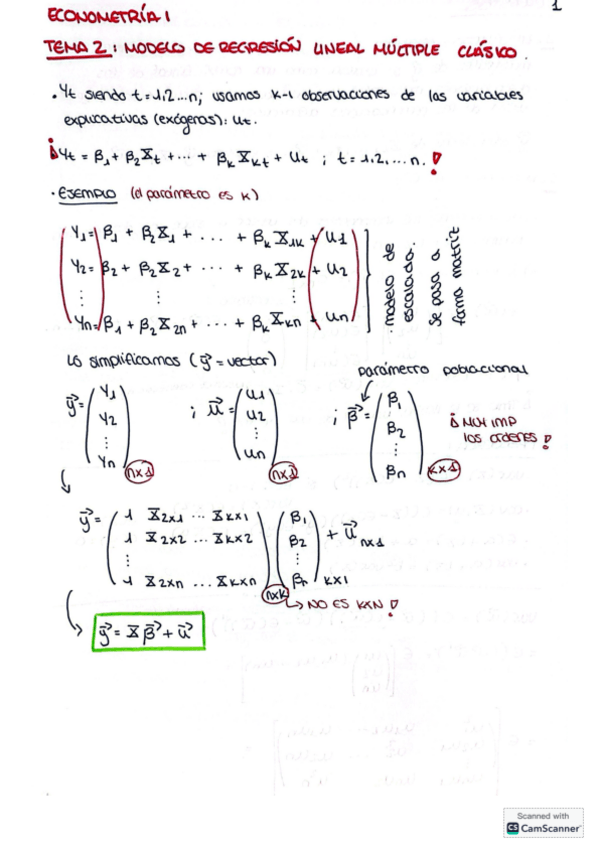 ECONOMETRÍA I
1
TEMA 2: MODELO DE REGRESIÓN LINEAL MÚLTIPLE CLÁSICO.
· Yt siendo t=1,2...n; usamos k-1 observaciones de las variables
explicativas (exógenas): ut.
¡Yt = β1 + β2Xt + ... + βkXkt + Ut ; t=1,2,...n.!
· EJEMPLO (el parámetro es K)
Y1 = β1 + β2X1 + ... + βkX1k + U1
Y2 = β2 + β2X2 + ... + βkX2k + U2
⋮ ⋮ ⋮
Yn = β1 + β2X2n + ... + βkXkn + Un
modelo de
escalada.
se pasa a
forma matriz
Lo simplificamos (y⃗ = vector)
parámetro poblacional
y⃗ = (Y1 Y2 ⋮ Yn) nx1 ; u⃗ = (U1 U2 ⋮ Un) nx1 ; β⃗ = (β1 β2 ⋮ βn) kx1
¡MUY IMP
los ordenes!
y⃗ = (1 X2x1 ... Xkx1) (β1) + u⃗ nx1
1 X2x2 ... Xkx2 β2
⋮ ⋮
1 X2xn ... Xkxn βn kx1
nxk
NO ES KXN!
y⃗ = Xβ⃗ + u⃗
Scanned with
CS CamScanner